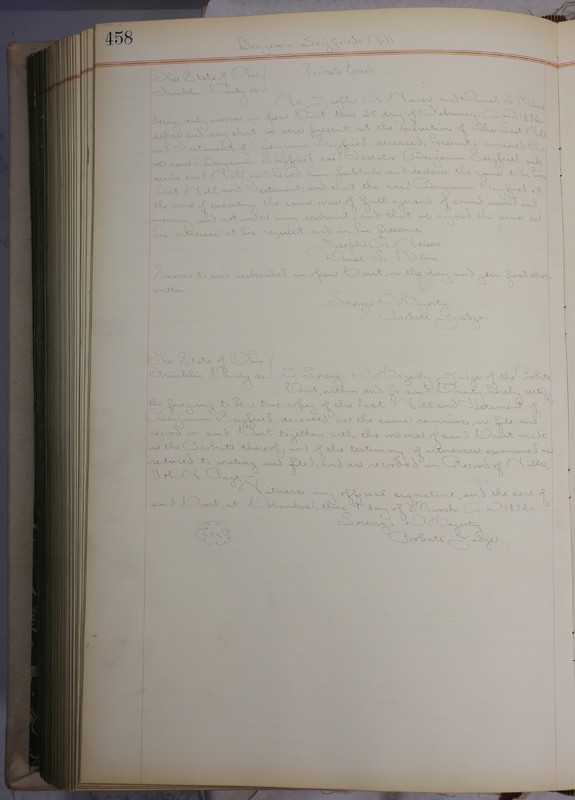 458
Benjamin Seigfried's Will
The State of Ohio } Probate Court
Franklin County ss
We, Joseph C. and Daniel L.
being duly sworn in open Court this 25 day of February A.D. 1892
depose and say that we were present at the execution of the last Will
and Testament of Benjamin Seigfried deceased, hereunto annexed; that
we saw Benjamin Seigfried said Testator Benjamin Seigfried sub
scribe said Will and heard him publish and declare the same to be his
last Will and Testament; and that the said Benjamin Seigfried at
the time of executing the same was of full age and of sound mind and
memory and not under any restraint; and that we signed the same as
his witnesses at his request and in his presence.
Joseph C.
Daniel L.
Sworn to and subscribed in open Court, on the day and year first above
written
Lorenzo D Hagerty
Probate Judge
The State of Ohio }
Franklin County ss I, Lorenzo D Hagerty, Judge of the Probate
Court, within and for said County, hereby certify
the foregoing to be a true copy of the last Will and Testament of
Benjamin Seigfried, deceased, on the same remains, on file and
record in said Court together with the orders of said Court made
on the Probate thereof, and of the testimony of witnesses examined in
reduced to writing and filed, and as recorded in Record of Wills,
Vol. Page
Witness my official signature, and the seal of
said Court, at Columbus, this day of March A.D. 1892
Lorenzo D Hagerty
Probate Judge
Seal